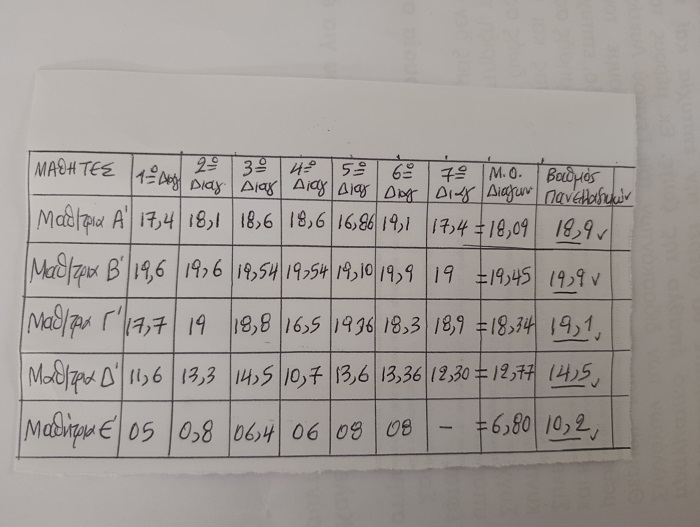 ΜΑΘΗΤΕΣ 1ο Διαγ 2ο Διαγ 3ο Διαγ 4ο Διαγ 5ο Διαγ 6ο Διαγ 7ο Διαγ Μ.Ο. Διαγων Βαθμός Πανελλαδικών
Μαθ/τρια Α' 17,4 18,1 18,6 18,6 16,86 19,1 17,4 = 18,09 18,9 ✓
Μαθ/τρια Β' 19,6 19,6 19,54 19,54 19,10 19,9 19 = 19,45 19,9 ✓
Μαθ/τρια Γ' 17,7 19 18,8 16,5 19,16 18,3 18,9 = 18,34 19,1 ✓
Μαθ/τρια Δ' 11,6 13,3 14,5 10,7 13,6 13,36 12,30 = 12,77 14,5 ✓
Μαθήτρια Ε' 05 0,8 06,4 06 08 08 – = 6,80 10,2 ✓